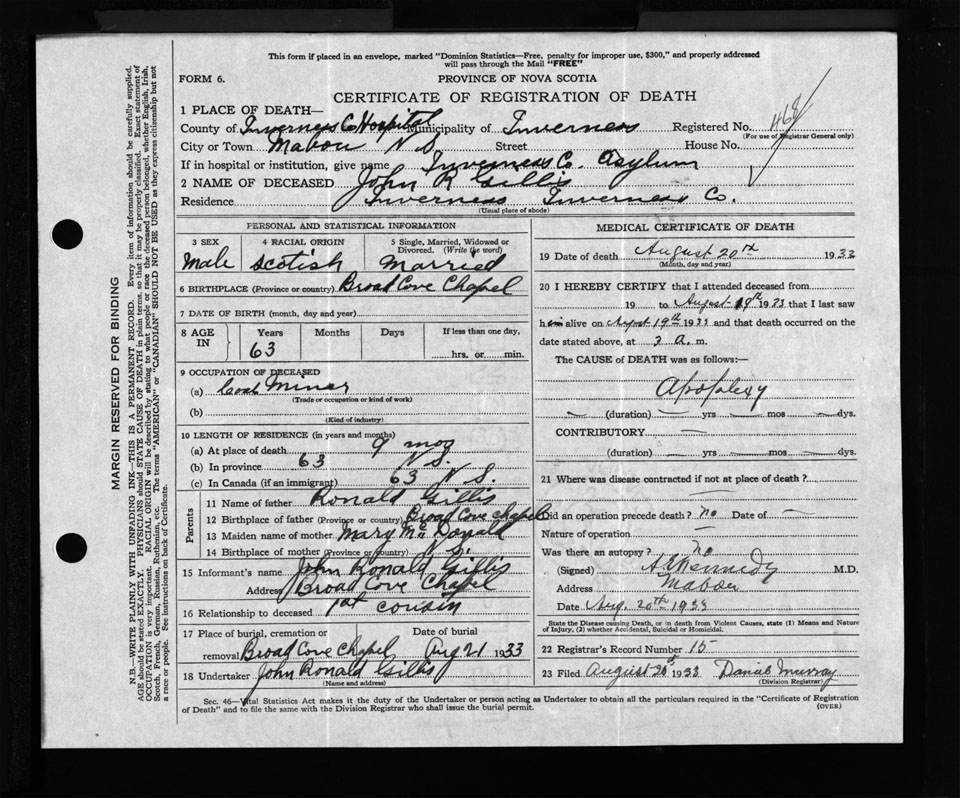 This form if placed in an envelope, marked "Dominion Statistics—Free, penalty for improper use, $300," and properly addressed
will pass through the Mail "FREE"
FORM 6.
PROVINCE OF NOVA SCOTIA
CERTIFICATE OF REGISTRATION OF DEATH
1 PLACE OF DEATH—
County of Inverness Co Hospital Municipality of Inverness Registered No. 468
(For use of Registrar General only)
City or Town Mabou N S Street House No.
If in hospital or institution, give name Inverness Co. Asylum
2 NAME OF DECEASED John R Gillis
Residence Inverness Inverness Co.
(Usual place of abode)
PERSONAL AND STATISTICAL INFORMATION
3 SEX 4 RACIAL ORIGIN 5 Single, Married, Widowed or
Divorced. (Write the word)
Male Scotish Married
6 BIRTHPLACE (Province or country) Broad Cove Chapel
7 DATE OF BIRTH (month, day and year)
8 AGE IN Years Months Days If less than one day,
63 hrs. or min.
9 OCCUPATION OF DECEASED
(a) Coal Miner
(Trade or occupation or kind of work)
(b)
(Kind of industry)
10 LENGTH OF RESIDENCE (in years and months)
(a) At place of death 9 mos
(b) In province 63 N S.
(c) In Canada (if an immigrant) 63 N S.
Parents
11 Name of father Ronald Gillis
12 Birthplace of father (Province or country) Broad Cove chapel
13 Maiden name of mother Mary Mc Donald
14 Birthplace of mother (Province or country) N. S.
15 Informant's name John Ronald Gillis
Address Broad Cove Chapel
16 Relationship to deceased 1st cousin
17 Place of burial, cremation or Date of burial
removal Broad Cove Chapel Aug 21 1933
18 Undertaker John Ronald Gillis
(Name and address)
MEDICAL CERTIFICATE OF DEATH
19 Date of death August 20th 1933
(Month, day and year)
20 I HEREBY CERTIFY that I attended deceased from
19 to August 19th 1933 that I last saw
him alive on August 19th 1933 and that death occurred on the
date stated above, at 3 a. m.
The CAUSE of DEATH was as follows:—
Apoplexy
(duration) yrs mos dys.
CONTRIBUTORY
(duration) yrs mos dys.
21 Where was disease contracted if not at place of death?
Did an operation precede death? no Date of
Nature of operation
Was there an autopsy? no
(Signed) Kennedy M.D.
Address Mabou
Date Aug. 20th 1933
State the Disease causing Death, or in death from Violent Causes, state (1) Means and Nature
of Injury, (2) whether Accidental, Suicidal or Homicidal.
22 Registrar's Record Number 15
23 Filed August 20th 1933 Daniel Murray
(Division Registrar)
Sec. 46—Vital Statistics Act makes it the duty of the Undertaker or person acting as Undertaker to obtain all the particulars required in the "Certificate of Registration
of Death" and to file the same with the Division Registrar who shall issue the burial permit.
(OVER)
MARGIN RESERVED FOR BINDING
N.B.—WRITE PLAINLY WITH UNFADING INK—THIS IS A PERMANENT RECORD. Every item of information should be carefully supplied.
AGE should be stated EXACTLY. PHYSICIANS should STATE CAUSE OF DEATH in plain terms, so that it may be properly classified. Exact statement of
OCCUPATION is very important. RACIAL ORIGIN will be described by stating to what people or race the deceased person belonged, whether English, Irish,
Scotch, French, German, Russian, Ruthenian, etc. The terms "AMERICAN" or "CANADIAN" SHOULD NOT BE USED as they express citizenship but not
a race or people. See instructions on back of Certificate.